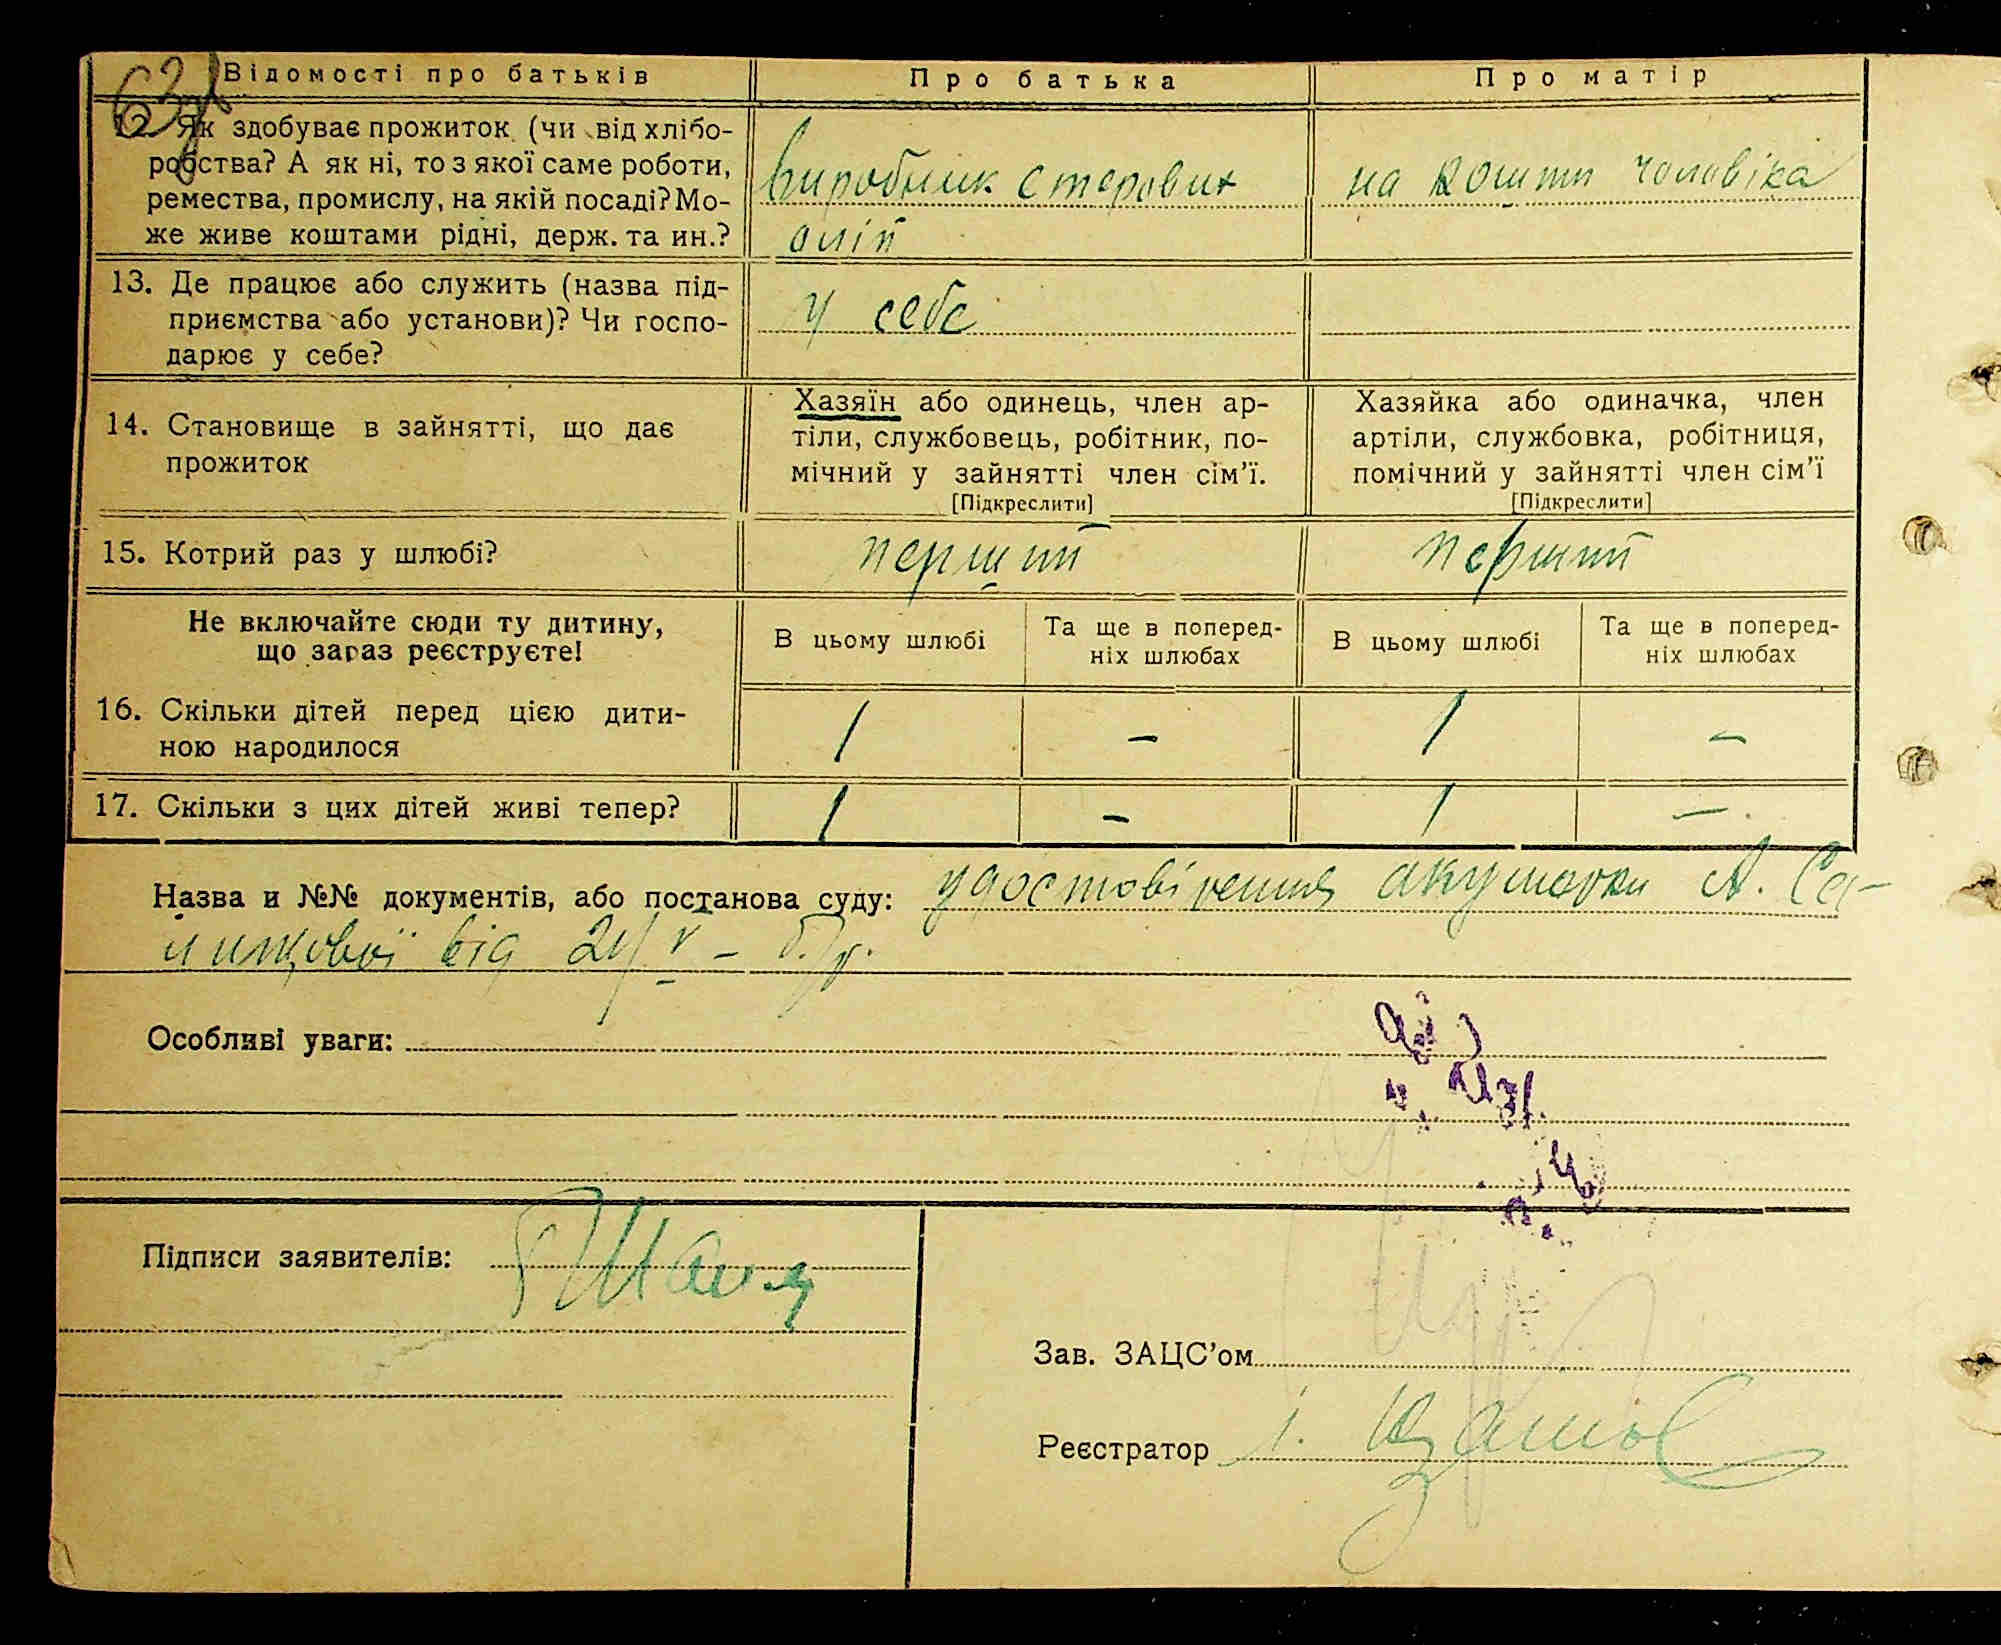 63
Відомості про батьків Про батька Про матір
12. Як здобуває прожиток (чи від хлібо-
робства? А як ні, то з якої саме роботи,
ремества, промислу, на якій посаді? Мо-
же живе коштами рідні, держ. та ин.?
Виробник
олії
на кошти чоловіка
13. Де працює або служить (назва під-
приємства або установи)? Чи госпо-
дарює у себе?
у себе
14. Становище в зайнятті, що дає
прожиток
Хазяїн або одинець, член ар-
тіли, службовець, робітник, по-
мічний у зайнятті член сім'ї.
[Підкреслити]
Хазяйка або одиначка, член
артіли, службовка, робітниця,
помічний у зайнятті член сім'ї
[Підкреслити]
15. Котрий раз у шлюбі? перший перший
Не включайте сюди ту дитину,
що зараз реєструєте!
В цьому шлюбі
Та ще в поперед-
ніх шлюбах
В цьому шлюбі
Та ще в поперед-
ніх шлюбах
16. Скільки дітей перед цією дити-
ною народилося
1 – 1 –
17. Скільки з цих дітей живі тепер? 1 – 1 –
Назва и №№ документів, або постанова суду: удостовірення акушорки А.
від 24/V – б/р.
Особливі уваги:
Підписи заявителів:
Зав. ЗАЦС'ом
Реєстратор